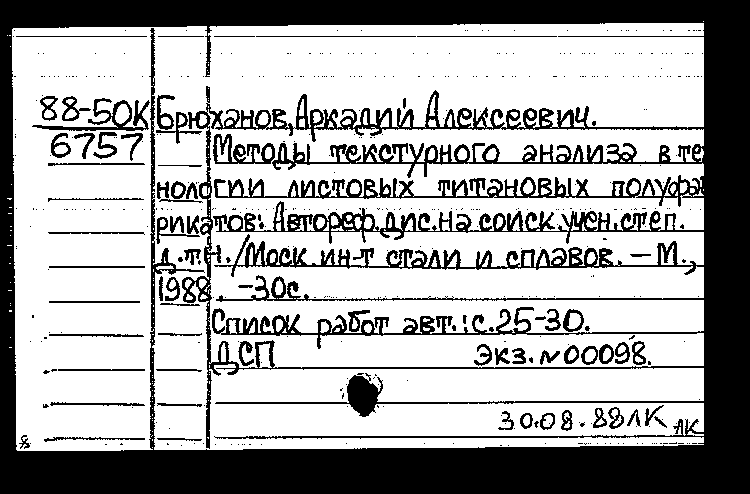 88-50К Брюханов, Аркадий Алексеевич.
6757 Методы текстурного анализа в тех
нологии листовых титановых полуфаб
рикатов: Автореф.дис.на соиск.учен.степ.
д.т.н./Моск.ин-т стали и сплавов. – М.,
1988. -30с.
Список работ авт.: с.25-30.
ДСП Экз.№00098.
30.08.88ЛК ЛК